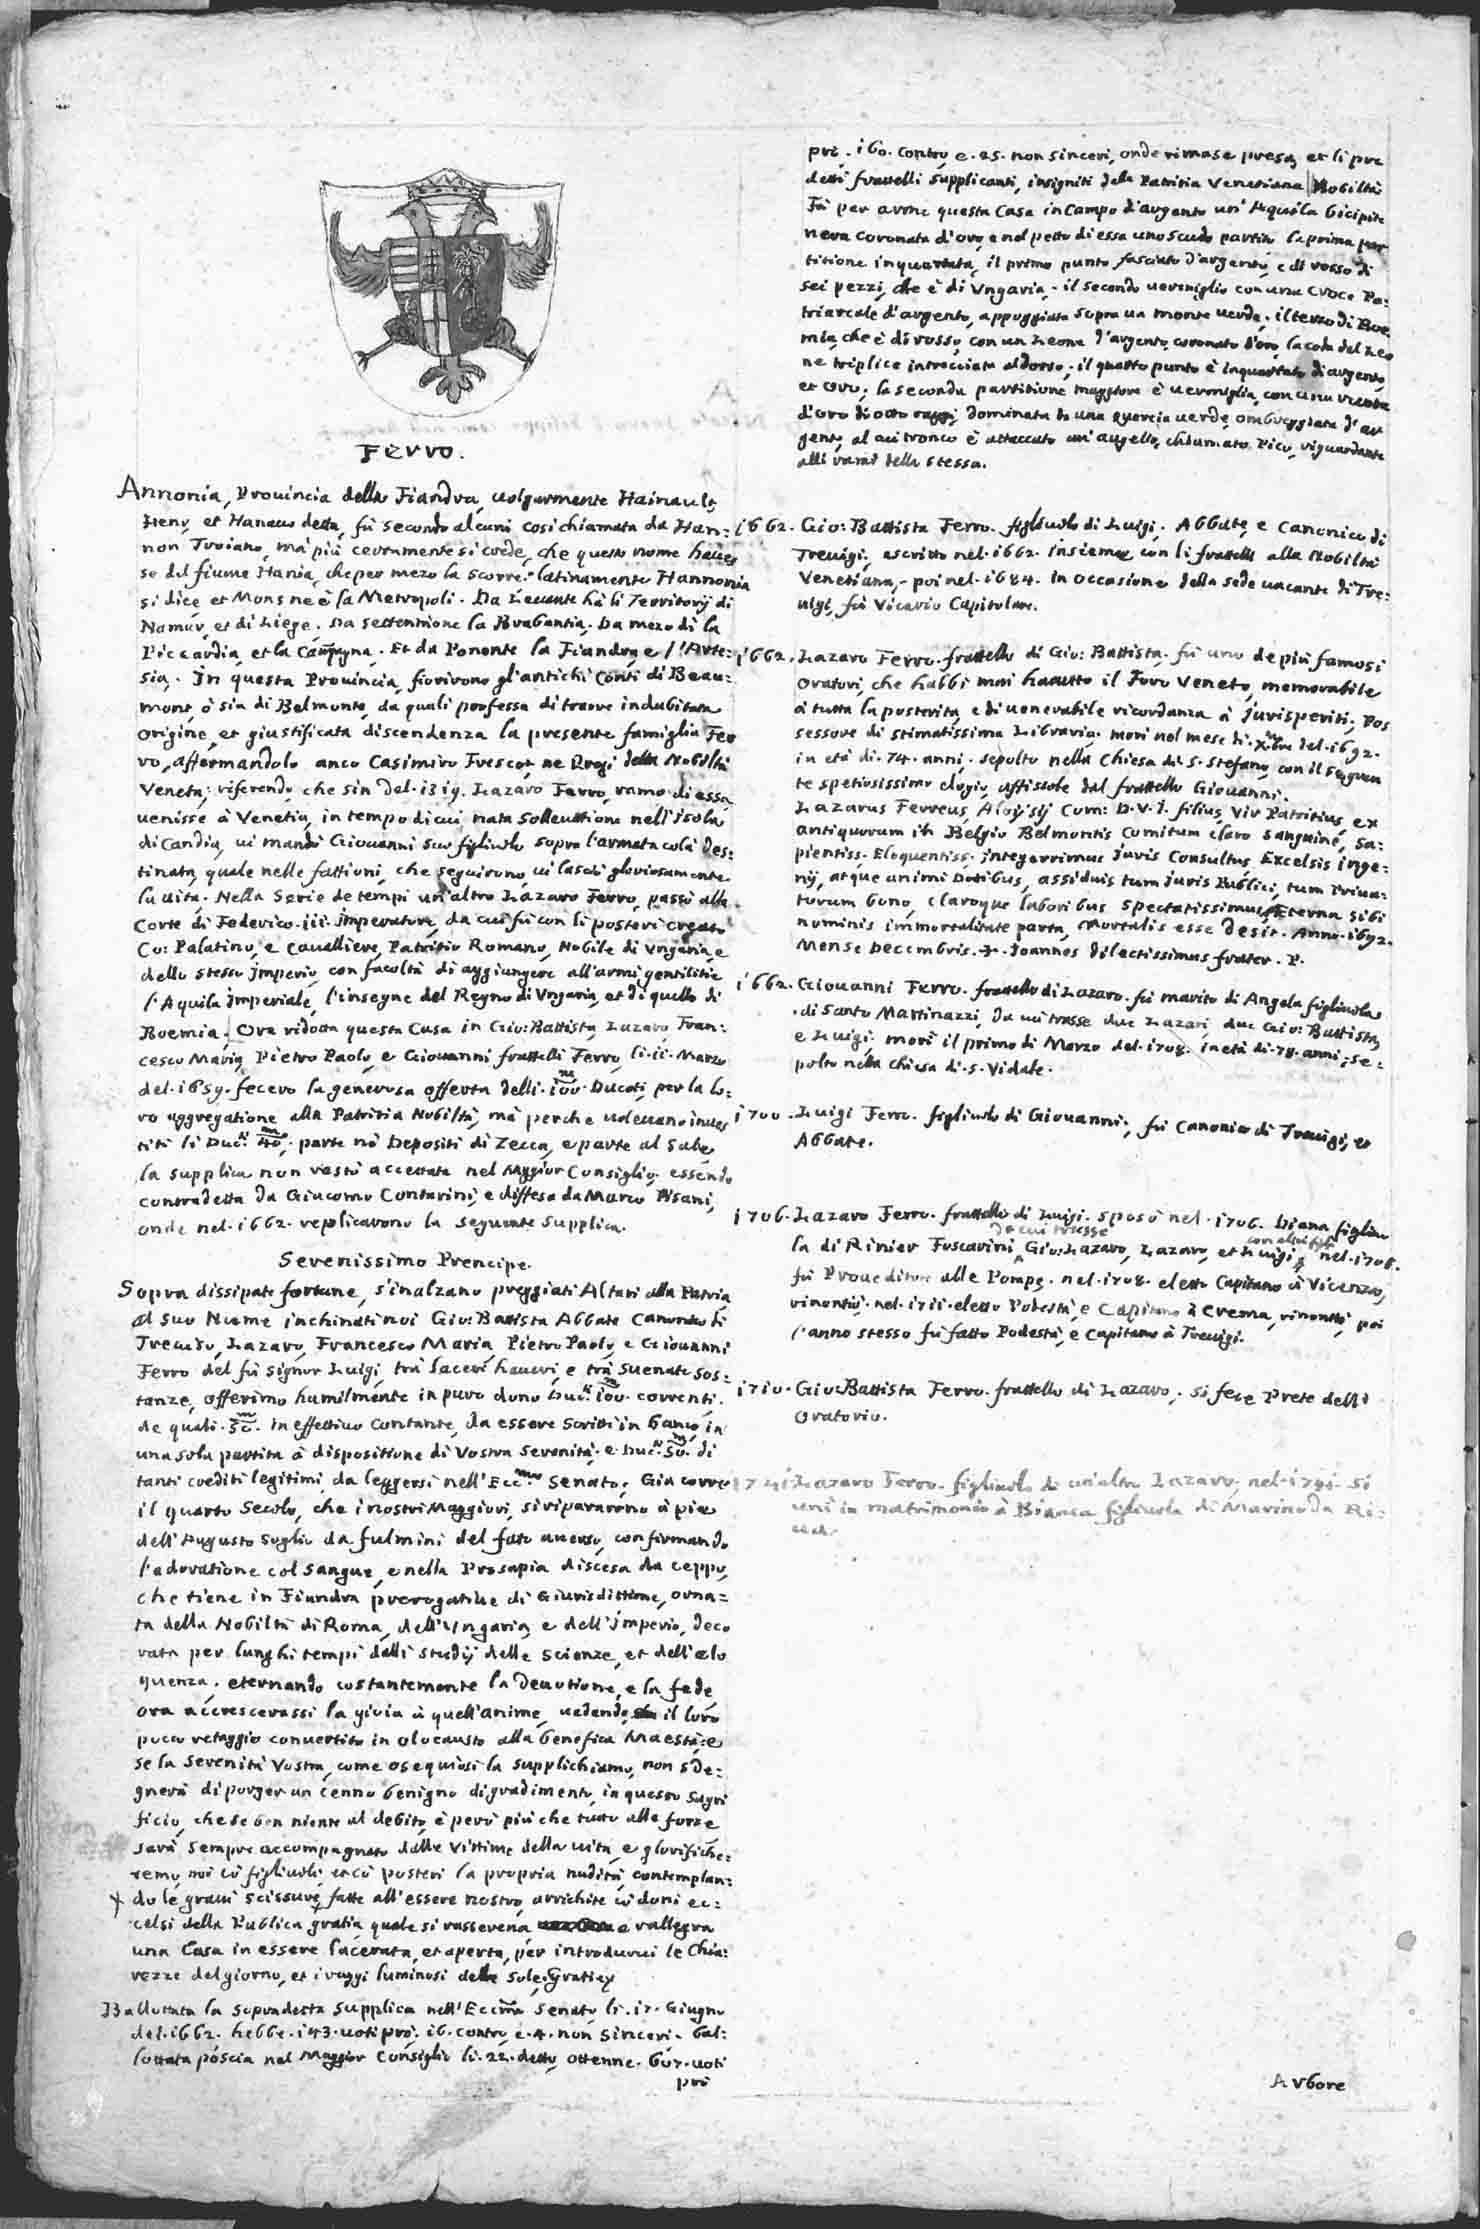 Ferro.
Annonia, Prouincia della Fiandra, uolgarmente Hainault,
Heno, et Hanaus detta, fù secondo alcuni cosi chiamata da Han=
non Troiano, mà più ceuramente si crede, che questo nome haues
se dal fiume Hania, che per mezo la scorre. latinamente Hannonia
si dice et Mons ne è la Metropoli. Da Leuante hà li Territorij di
Namur, et di Liege. Da settentrione la Brabantia. Da mezo dì la
Piccardia, et la Campagna. Et da Ponente la Fiandra, e l'Arte=
sia. In questa Prouincia, fiorirono gl'antichi Conti di Beau=
mont, ò sia di Belmonte, da quali professa di trarre indubitata
origine, et giustificata discendenza la presente famiglia Fer
ro, affermandolo anco Casimiro Frescot, ne Pregi della Nobiltà
Veneta; riferendo, che sin del 1319. Lazaro Ferro, ramo di essa,
uenisse à Venetia, in tempo di cui nata solleuatione nell'isola
di Candia, ui mandò Giouanni suo figliuolo sopra l'armata colà des=
tinata, quale nelle fattioni, che seguirono, ui lasciò gloriosamente
la uita. Nella Serie de tempi un'altro Lazaro Ferro, passò alla
Corte di Federico .iii. imperatore, da cui fù con li posteri creato
Co: Palatino, e Caualliere, Patritio Romano, Nobile di Vngaria, e
dello stesso imperio, con facoltà di aggiungere all'armi gentilitie
l'Aquila imperiale, l'insegne del Regno di Vngaria, et di quello di
Boemia. Ora ridotta questa Casa in Gio: Battista, Lazaro, Fran=
cesco Maria, Pietro Paolo, e Giouanni fratelli Ferro, li .ii. Marzo
del .1659. fecero la generosa offerta delli .100.m Ducati, per la lo=
ro aggregatione alla Patritia Nobiltà, mà perche uoleuano inues
titi li Duc.ti 40.m parte nò Depositi di Zecca, e parte al Sale,
la supplica non restò accettata nel Maggior Consiglio, essendo
contradetta da Giacomo Contarini, e diffesa da Marco Pisani,
onde nel .1662. replicarono la seguente supplica.
Serenissimo Prencipe.
Sopra dissipate fortune, s'inalzano preggiati Altari alla Patria,
al suo Nume inchinati noi Gio: Battista Abbate Canonico di
Treuiso, Lazaro, Francesco Maria, Pietro Paolo, e Giouanni
Ferro del fù signor Luigi, trà laceri haueri, e trà suenate sos=
tanze, offerimo humilmente in puro dono Duc.ti 100.m correnti,
de quali .50.m in effettiuo contante, da essere scritti in banco, in
una sola partita à dispositione di Vostra Serenità, e Duc.ti 50.m di
tanti crediti legitimi, da leggersi nell'Ecc.mo Senato. Già corre
il quarto Secolo, che i nostri Maggiori, si ripararono à piè
dell'Augusto Soglio da fulmini del fato auerso, confirmando
l'adoratione col sangue, e nella Prosapia discesa da ceppo,
che tiene in Fiandra prerogatiue di Giurisdittione, orna=
ta della Nobiltà di Roma, dell'Vngaria, e dell'imperio, deco
rata per lunghi tempi dalli studij delle scienze, et dell'elo
quenza. eternando costantemente la deuotione, e la fede
ora accrescerassi la gioia à quell'anime, uedendo il loro
poco retaggio conuertito in olocausto alla benefica Maestà; e
se la Serenità Vostra, come osequiosi la supplichiamo, non sde=
gnerà di porger un cenno benigno di gradimento, in questo sagri
ficio, che se ben niente al debito, è però più che tutto alle forze
sarà sempre accompagnato dalle vittime della uita, e glorifiche=
remo, noi cò figliuoli, et cò posteri la propria nudità, contemplan=
do le graui scissure, fatte all'essere nostro, arrichite cò doni ec=
celsi della Publica gratia, quale si rasserena e rallegra
una Casa in essere lacerata, et aperta, per introdurui le Chia=
rezze del giorno, et i raggi luminosi delle sole. Gratiey
Ballottata la sopradetta supplica nell'Eccmo Senato, li .17. Giugno
del .1662. hebbe .143. uoti prò. 16. contro, e .4. non sinceri. bal=
lottata poscia nel Maggior Consiglio li .22. detto, ottenne .607. uoti
prò
prò. 160. contro, e .25. non sinceri, onde rimase presa, et li pre
detti fratelli supplicanti, insigniti della Patritia Venetiana Nobiltà
Fà per arme questa Casa in Campo d'argento un'Aquila bicipite
nera coronata d'oro, e nel petto di essa uno scudo partito la prima par
titione inquartata, il primo punto fasciato d'argento, e di rosso di
sei pezzi, che è di Vngaria, il secondo uermiglio con una Croce Pa=
triarcale d'argento, appoggiata sopra un monte uerde. il terzo di Boe
mia, che è di rosso, con un Leone d'argento, coronato d'oro, la coda del Leo
ne triplice intrecciata al dorso; il quarto punto è inquartato di argento,
et oro; la seconda partitione maggiore è uermiglia, con una ruota
d'oro di otto raggi, dominata da una quercia uerde, ombreggiata d'ar
gento, al cui tronco è attaccato un'augello, chiamato Pico, riguardante
alli rami della stessa.
1662. Gio: Battista Ferro. figliuolo di Luigi. Abbate, e Canonico di
Treuigi, ascritto nel .1662. insieme con li fratelli alla Nobiltà
Venetiana, poi nel .1684. in occasione della sede uacante di Tre=
uigi, fù Vicario Capitolare.
1662. Lazaro Ferro. frattello di Gio: Battista. fù uno de più famosi
Oratori, che habbi mai hauuto il Foro Veneto, memorabile
à tutta la posterità, e di uenerabile ricordanza à jurisperiti. Pos
sessore di stimatissima Libraria. morì nel mese di Xbre del .1692.
in età di .74. anni. sepolto nella Chiesa di S. Stefano, con il seguen
te spetiosissimo elogio, affissole dal fratello Giouanni.
Lazarus Ferreus, Aloysij Com: D. V. I. filius, Vir Patritius, ex
antiquorum in Belgio Belmontis Comitum claro sanguine, sa=
pientiss. Eloquentiss. integerrimus juris Consultus, Excelsis inge=
nij, atque animi Dotibus, assiduis tum juris Publici, tum Priua=
torum bono, claroque laboribus spectatissimus, Æterna sibi
nominis immortalitate parta, Mortalis esse desit. Anno .1692.
Mense Decembris. 7. Joannes dilectissimus frater. P.
1662. Giouanni Ferro. frattello di Lazaro. fù marito di Angela figliuola
di Santo Martinazzi, da cui trasse due Lazari, due Gio: Battista,
e Luigi, morì il primo di Marzo del .1708. in età di .78. anni; se=
polto nella Chiesa di S. Vidale.
1700. Luigi Ferro. figliuolo di Giouanni, fù Canonico di Treuigi, et
Abbate.
1706. Lazaro Ferro. frattello di Luigi. sposò nel .1706. Diana figliuo
la di Rinier Foscarini, da cui trasse Gio: Lazaro, Lazaro, et Luigi, con altri figli nel .1708.
fù Proueditore alle Pompe. nel .1708. eletto Capitano à Vicenza,
rinontiò. nel .1711. eletto Podestà, e Capitano à Crema, rinontiò, poi
l'anno stesso fù fatto Podestà, e Capitano à Treuigi.
1710. Gio: Battista Ferro. frattello di Lazaro. si fece Prete dell'
Oratorio.
1741 Lazaro Ferro. figliuolo di un'altro Lazaro, nel .1741. si
unì in matrimonio à Bianca figliuola di Marino da Ri=
ua.
Arbore